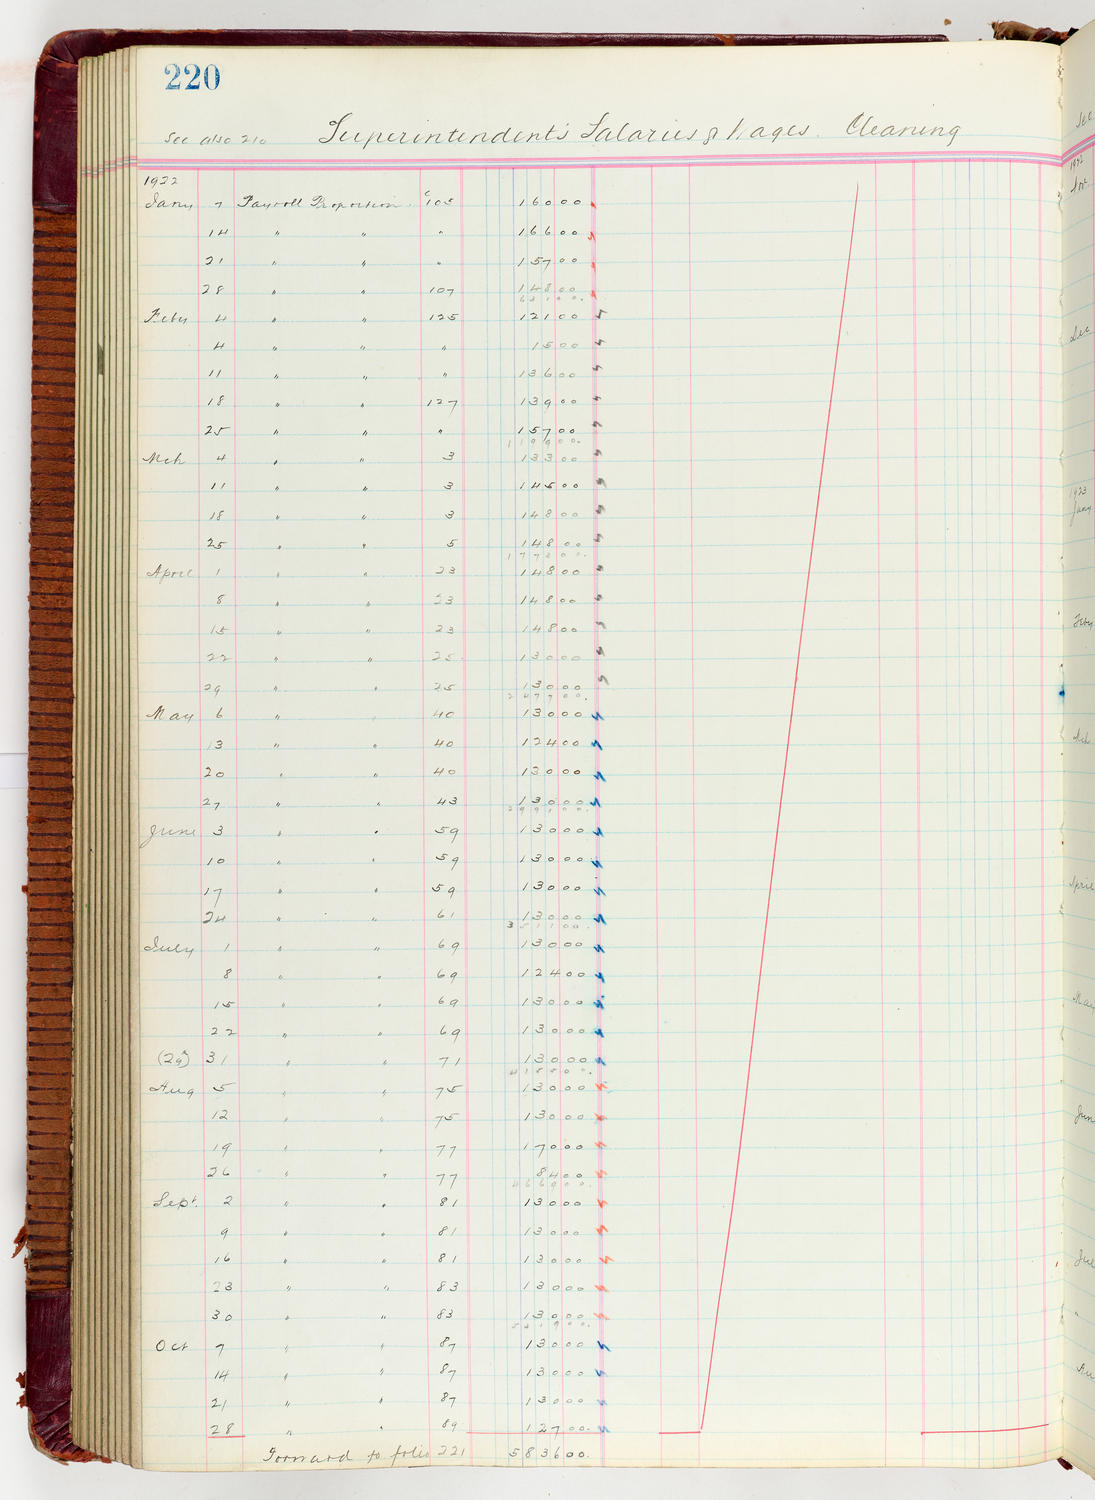 220
See also 210 Superintendent's Salaries & Wages. Cleaning
1922
Jany 7 Payroll Proportion. C105 160 00
14 " " " 166 00
21 " " " 157 00
28 " " 107 148 00
631 00.
Feby 4 " " 125 121 00
4 " " " 15 00
11 " " " 136 00
18 " " 127 139 00
25 " " " 157 00
1199 00.
Mch 4 " " 3 133 00
11 " " 3 145 00
18 " " 3 148 00
25 " " 5 148 00
1773 00.
April 1 " " 23 148 00
8 " " 23 148 00
15 " " 23 148 00
22 " " 25 130 00
29 " " 25 130 00
2477 00.
May 6 " " 40 130 00
13 " " 40 124 00
20 " " 40 130 00
27 " " 43 130 00
2991 00.
June 3 " " 59 130 00
10 " " 59 130 00
17 " " 59 130 00
24 " " 61 130 00
3511 00.
July 1 " " 69 130 00
8 " " 69 124 00
15 " " 69 130 00
22 " " 69 130 00
(29) 31 " " 71 130 00
4155 00.
Aug 5 " " 75 130 00
12 " " 75 130 00
19 " " 77 170 00
26 " " 77 84 00
4669 00.
Sept. 2 " " 81 130 00
9 " " 81 130 00
16 " " 81 130 00
23 " " 83 130 00
30 " " 83 130 00
5319 00.
Oct 7 " " 87 130 00
14 " " 87 130 00
21 " " 87 130 00
28 " " 89 127 00.
Forward to folio 221 5836 00.
1923
Jany
Dec
Feby
April
May